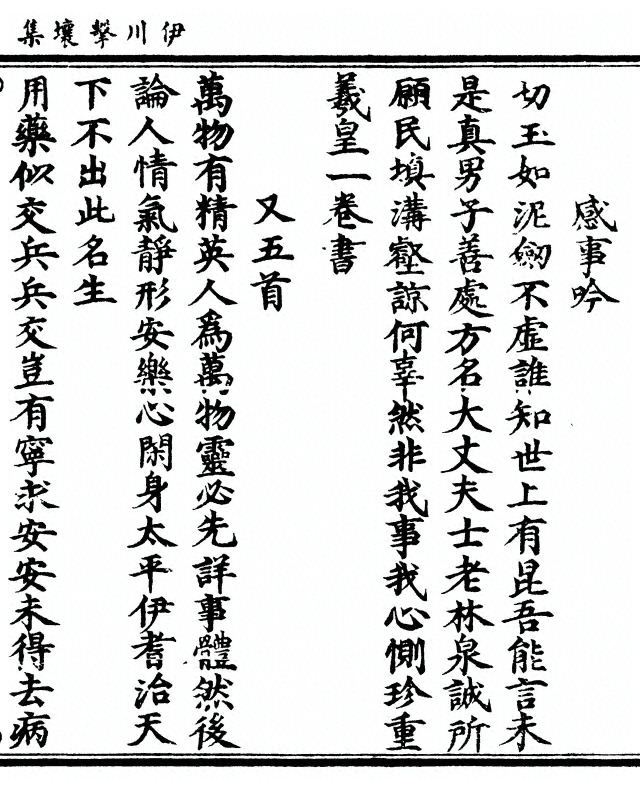 伊川擊壤集
感事吟
切玉如泥劒不虛誰知世上有昆吾能言未
是真男子善處方名大丈夫士老林泉誠所
願民塡溝壑諒何辜然非我事我心惻珍重
羲皇一卷書
又五首
萬物有精英人爲萬物靈必先詳事體然後
論人情氣靜形安樂心閑身太平伊耆治天
下不出此名生
用藥似交兵兵交豈有寧求安安未得去病